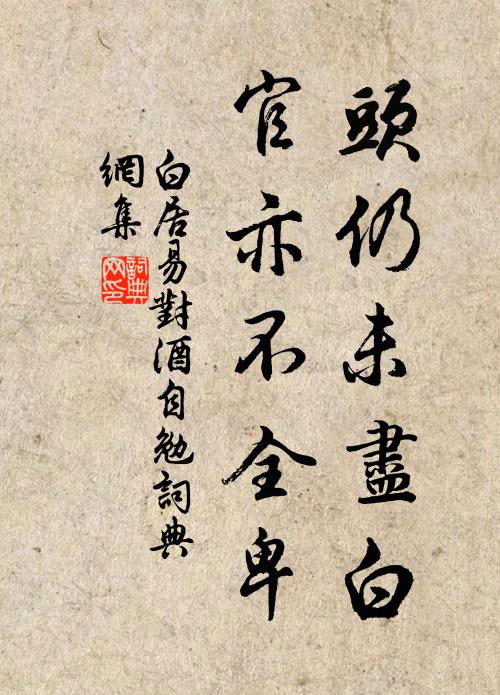 頭仍未盡白
官亦不全卑
白居易對酒自勉詞典
網集
詞典
网印